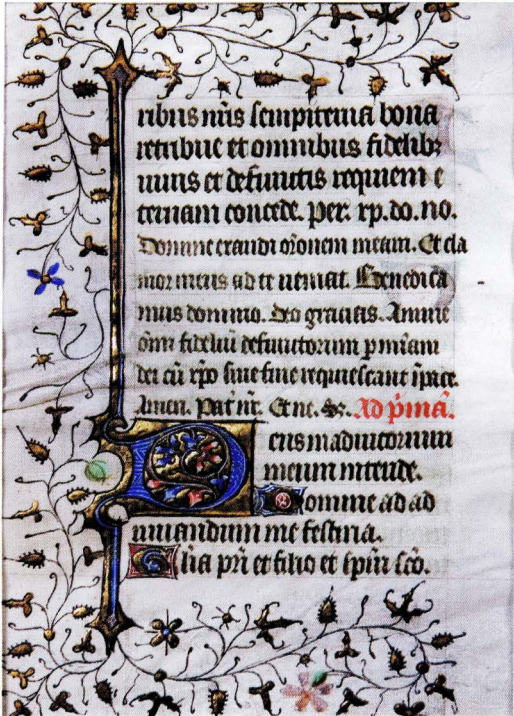 ribus nr̄is sempiterna bona
retribue et omnibus fidelibꝫ
uiuis et defunctis requiem e
ternam concede. Per. xp̄. do. no.
Domine exaudi or̄onem meam. Et cla
mor meus ad te ueniat. Benedica
mus domino. deo gracias. Anime
om̄i fideliū defunctorum p mīam
dei cū xp̄o sine fine requiescant ī pace.
Amen. Pat nr̄. Et ne. S;. Ad p̄mā.
Deus in adiutorium
meum intende.
Domine ad ad
iuuandum me festina.
Glīa pr̄i et filio et sp̄ui sc̄o.